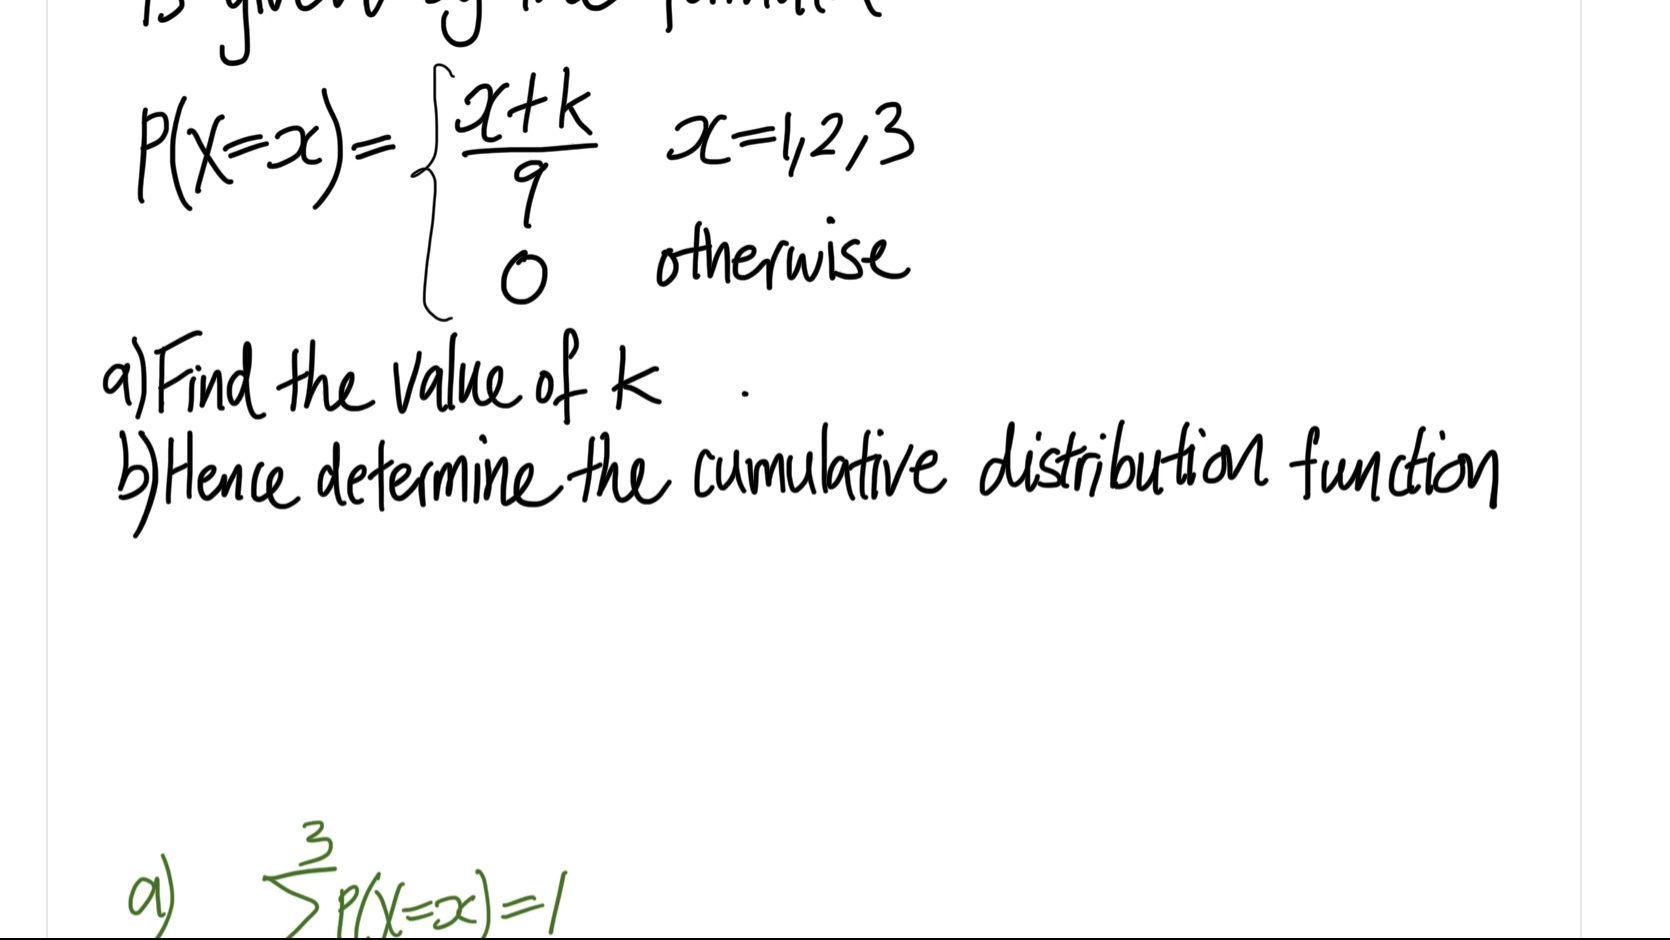 is given by the formula
P(X=x)= { x+k / 9 x=1,2,3
0 otherwise
a) Find the value of k .
b) Hence determine the cumulative distribution function
3
a) ∑ P(X=x)=1